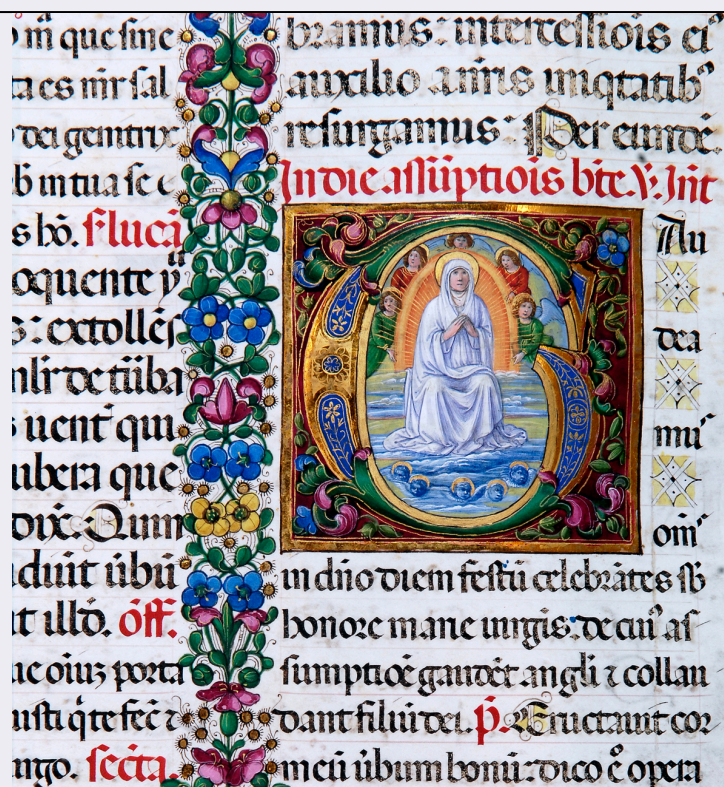 m̄ que sine
ta es nir̄ sal
dei genitrix
b in tua se
s bō. sˡucā
oquente
s: extollēs
de tūba
uent̄ qui
ubera que
dix̄. Qum
duīt ūbū
t illō. ōff.
ue oiuz porta
uisti q̄ te fec̄ ⁊
ngo. sec̄ta.
bramus: intercessiois eiꝰ
auxilio a nr̄is iniqtatibꝰ
resurgamus: Per eundē.
In die assūptiois bte. V. Int
G Au
dea
muꝰ
om̄
in dn̄o diem festū celebrātes sb̄
honore marie uirgis: de cuiꝰ as
sumptiōe gaudēt angli ⁊ collau
dant filiū dei. p̄. Eructauit cor
meū ūbum bonū: dico ē opera